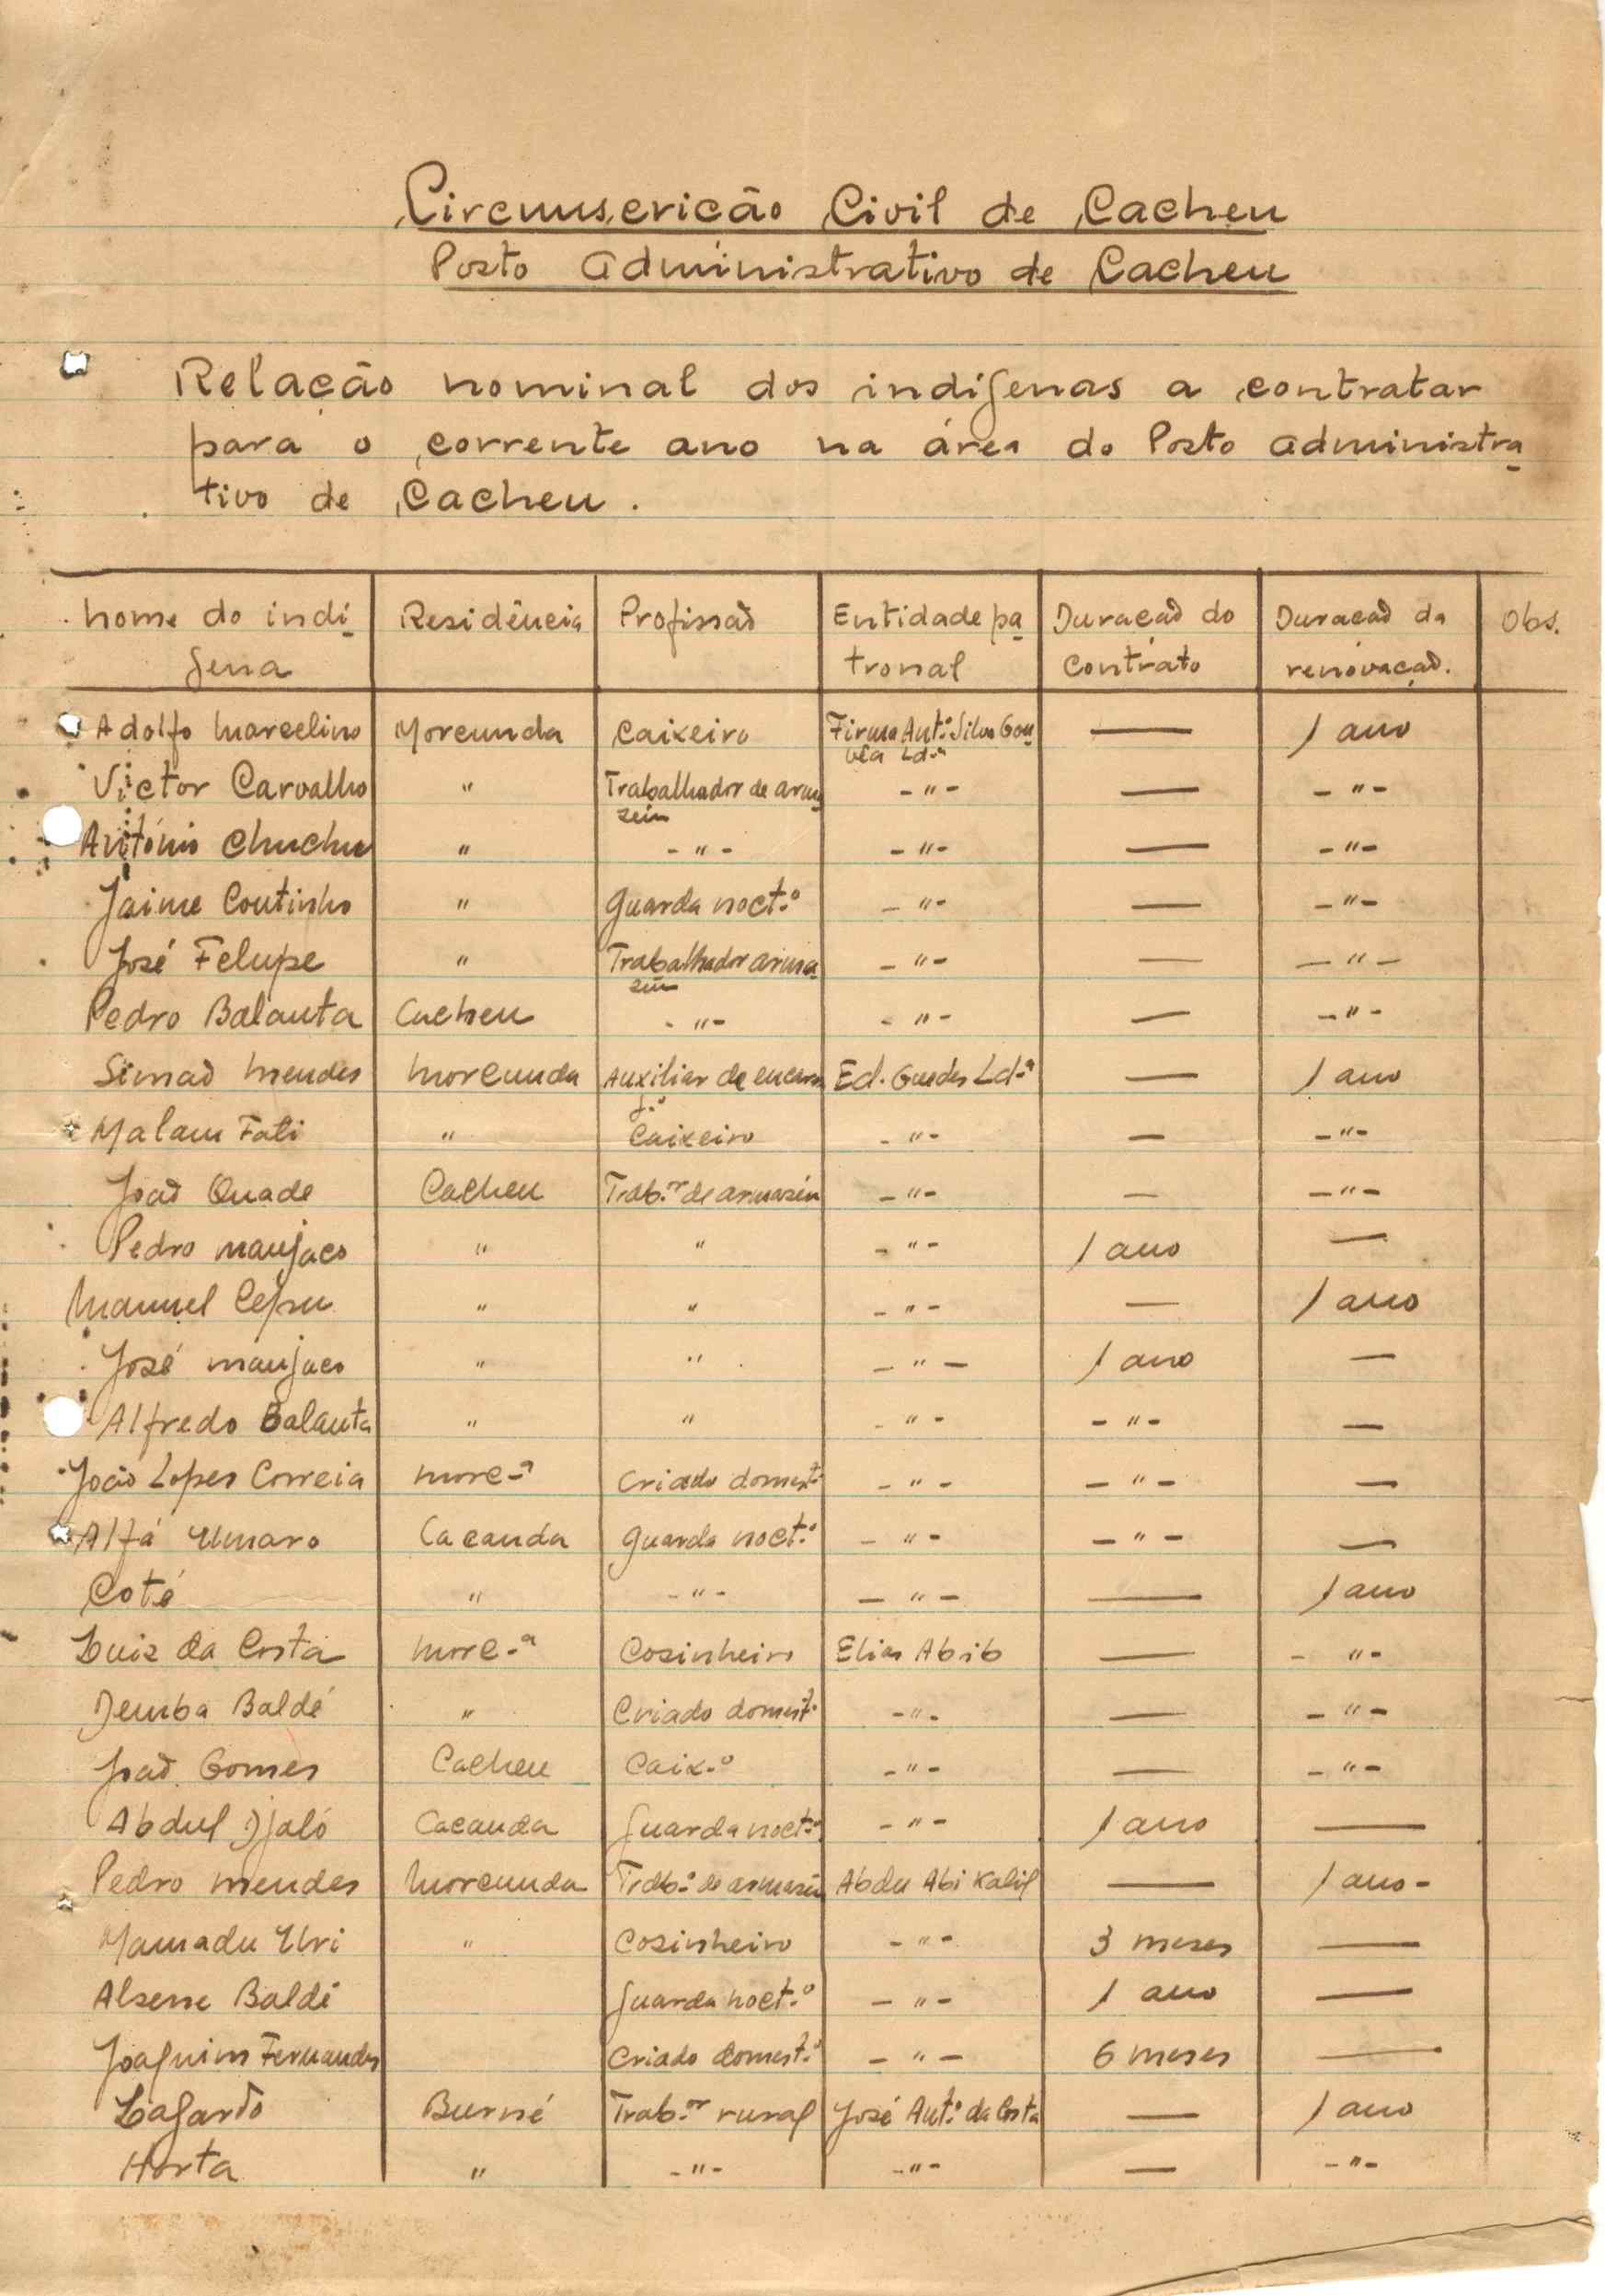 Circunscrição Civil de Cacheu
Posto Administrativo de Cacheu
Relação nominal dos indígenas a contratar
para o corrente ano na área do Posto Administra
tivo de Cacheu.
nome do indí Residência Profissaõ Entidade pa Duraçaõ do Duraçaõ da Obs.
gena tronal Contrato renovaçaõ.
Adolfo Marcelino Morcunda Caixeiro Firma Ant.º Silva Gou — 1 ano
vêa Ld.ª
Victor Carvalho " Trabalhador de arma -"- — -"-
zein
António Chuchu " -"- -"- — -"-
Jaime Coutinho " Guarda noct.º -"- — -"-
José Felupe " Trabalhador arma -"- — -"-
zein
Pedro Balanta Cacheu -"- -"- — -"-
Simaõ Mendes Morcunda Auxiliar de encarr Ed. Guedes Ld.ª — 1 ano
g.º
Malam Fati " Caixeiro -"- — -"-
Joaõ Quade Cacheu Trab.or de armazén -"- — -"-
Pedro manjaco " " -"- 1 ano —
Manuel Cepu " " -"- — 1 ano
José manjaco " " -"- 1 ano —
Alfredo Balanta " " -"- -"- —
João Lopes Correia Morc-ª Criado domest.º -"- -"- —
Alfá Umaro Cacanda Guarda noct.º -"- -"- —
Coté " -"- -"- — 1 ano
Luiz da Costa Morc-ª Cosinheiro Elias Abib — -"-
Demba Baldé " Criado domest.º -"- — -"-
Joaõ Gomes Cacheu Caix.º -"- — -"-
Abdul Djaló Cacanda Guarda noct.º -"- 1 ano —
Pedro Mendes Morcunda Trab.º de armazén Abdu Abi Kalil — 1 ano-
Mamadu Uri " Cosinheiro -"- 3 meses —
Alsene Baldé Guarda noct.º -"- 1 ano —
Joaquim Fernandes Criado domest.º -"- 6 meses —
Lagarto Burné Trab.or rural José Ant.º da Costa — 1 ano
Horta " -"- -"- — -"-